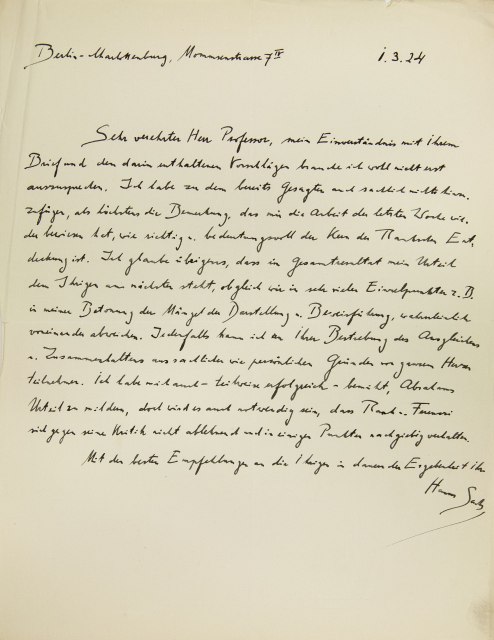 Berlin-Charlottenburg, Mommsenstrasse 7 IV 1.3.24
Sehr verehrter Herr Professor, mein Einverständnis mit Ihrem
Brief und den darin enthaltenen Vorschlägen brauche ich wohl nicht erst
auszusprechen. Ich habe zu dem bereits Gesagten auch sachlich nichts hin-
zufügen, als höchstens die Bemerkung, das mir die Arbeit der letzten Woche wie-
der bewiesen hat, wie richtig u. bedeutungsvoll der Kern der Rankschen Ent-
deckung ist. Ich glaube übrigens, dass im Gesamtresultat mein Urteil
dem Ihrigen am nächsten steht, obgleich wir in sehr vielen Einzelpunkten z. B.
in meiner Betonung der Mängel der Darstellung u. Beweisführung, wahrscheinlich
voneinander abweichen. Jedenfalls kann ich an Ihrer Bestrebung des Ausgleiches
u. Zusammenhaltens aus sachlichen wie persönlichen Gründen von ganzem Herzen
teilnehmen. Ich habe mich auch - teilweise erfolgreich - bemüht, Abrahams
Urteil zu mildern, doch wird es auch notwendig sein, dass Rank u. Ferenczi
sich gegen seine Kritik nicht ablehnend und in einigen Punkten nachgiebig verhalten.
Mit den besten Empfehlungen an die Ihrigen in dauernder Ergebenheit Ihr
Hanns Sachs